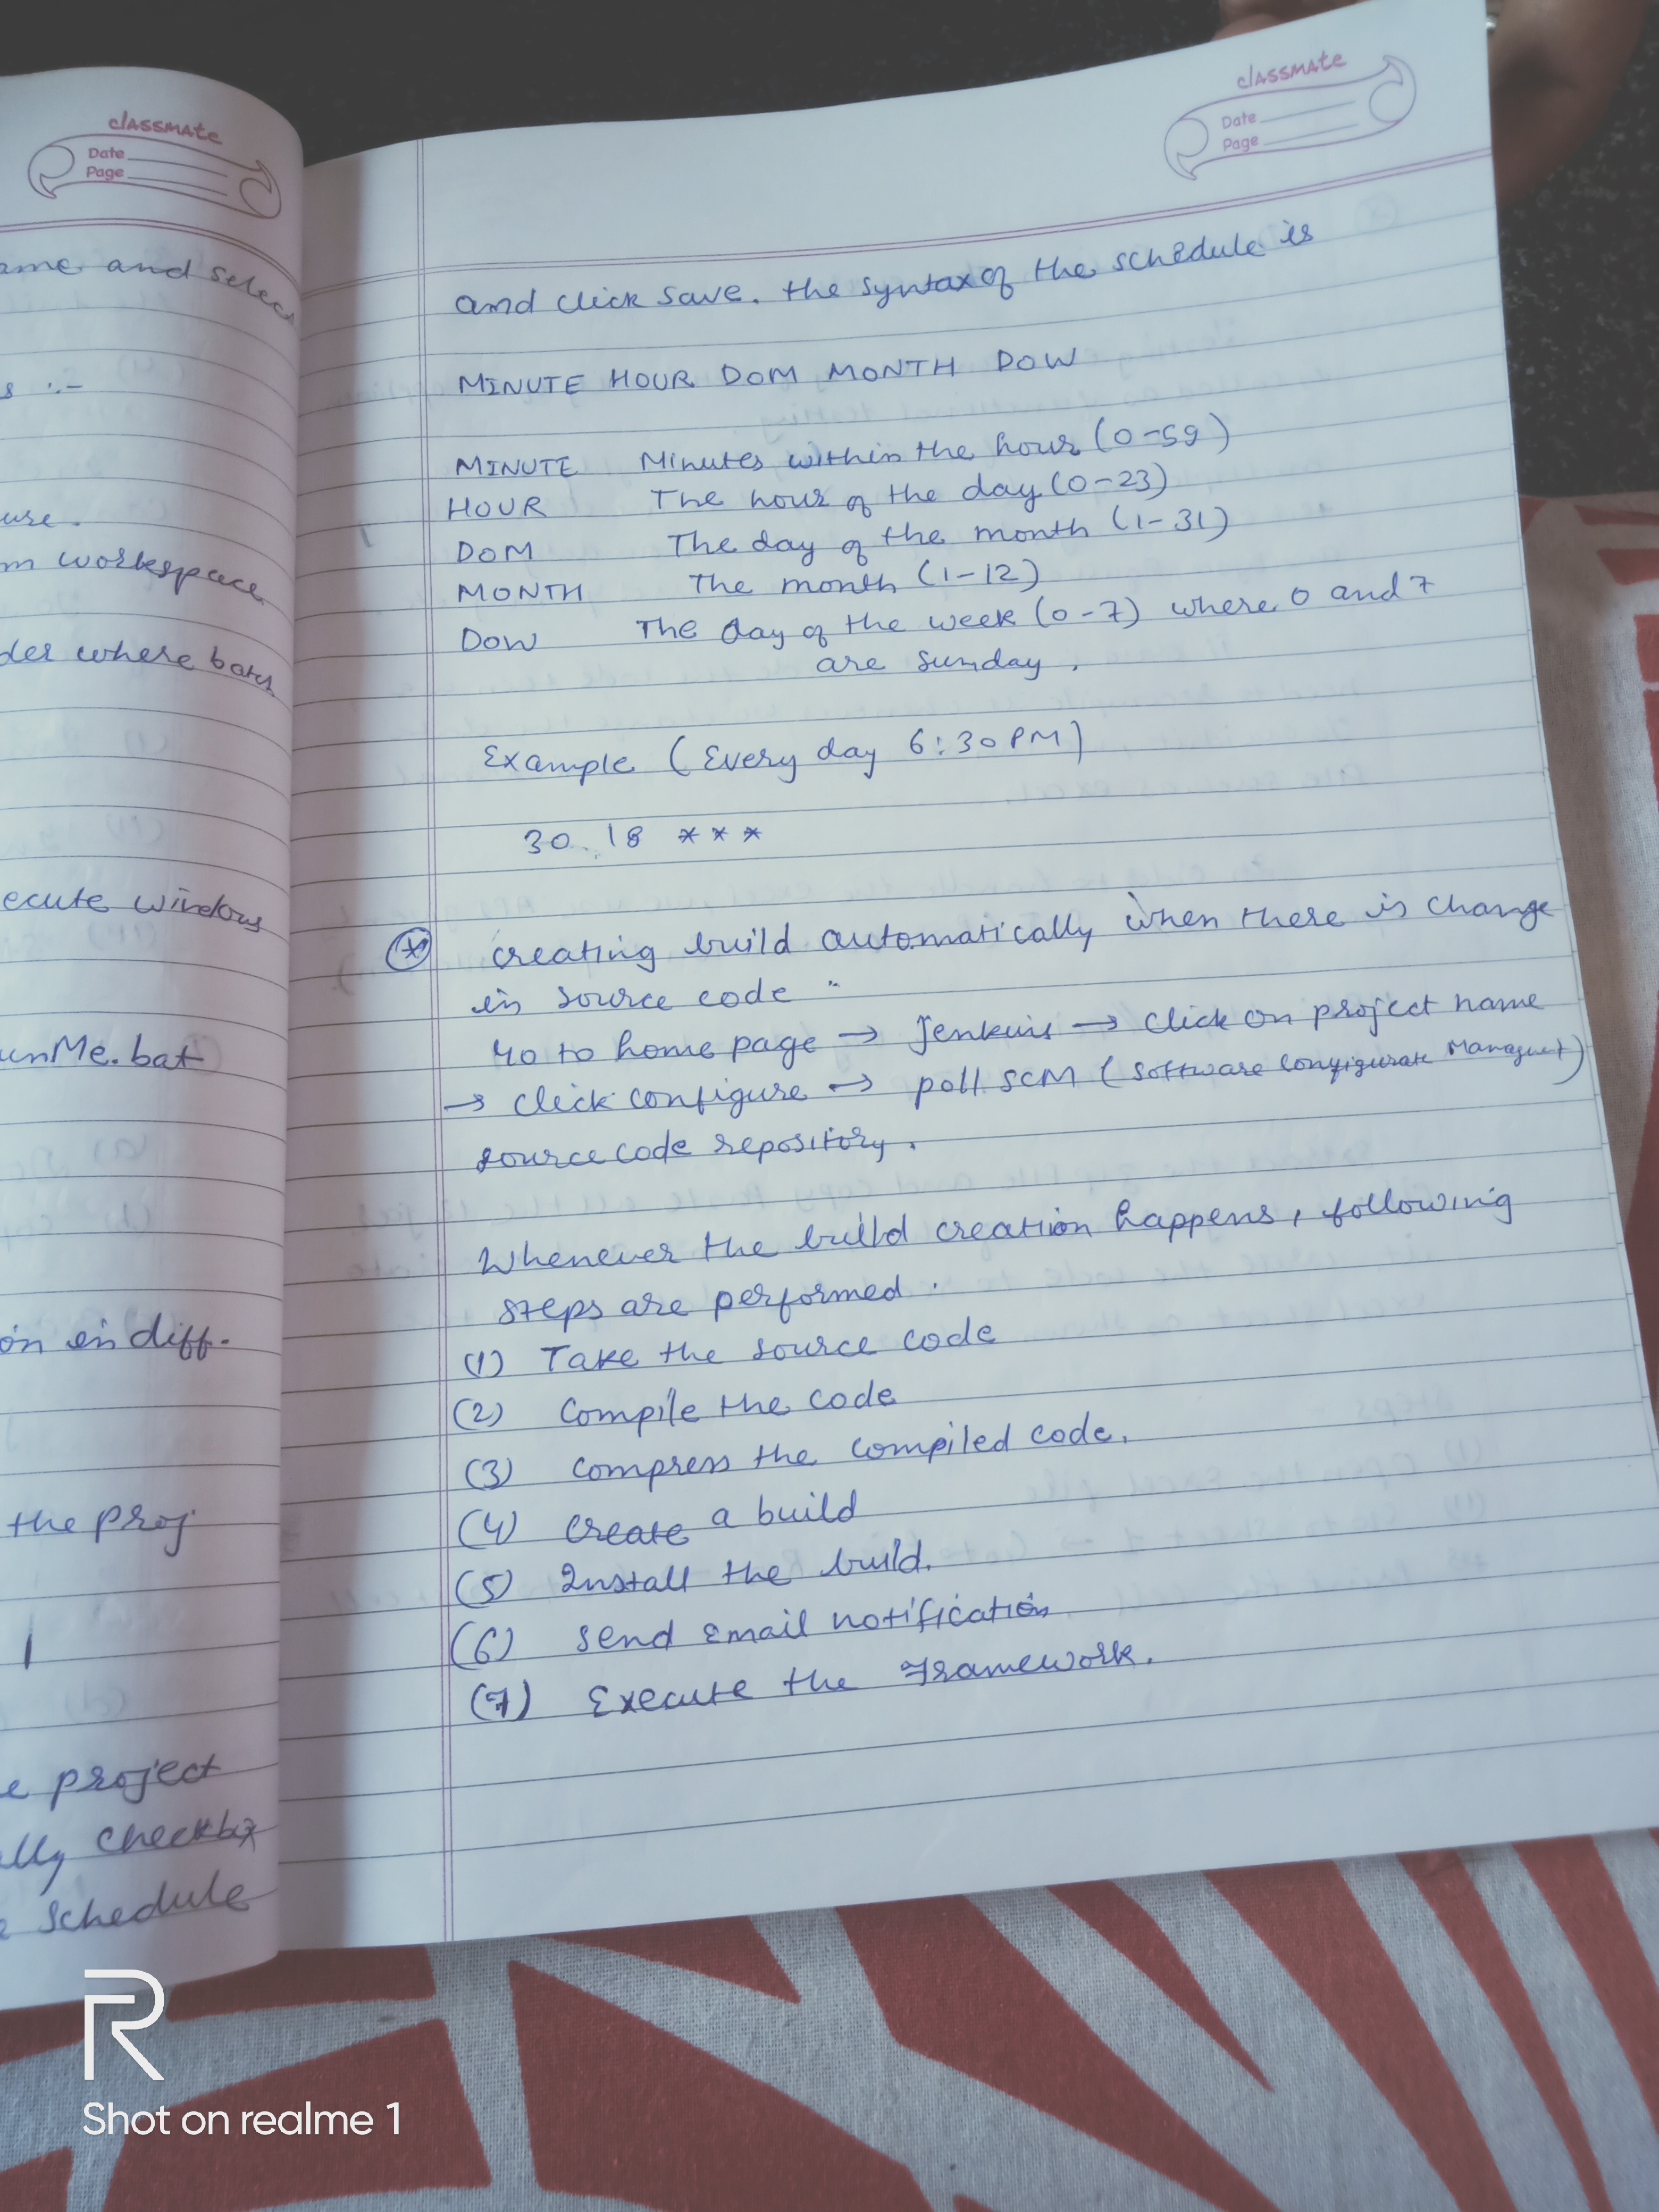 classmate
Date
Page
ame and select
s :-
ure.
m workspace
der where batch
ecute windows
unMe.bat
on in diff.
the proj
e project
ally checkbox
e schedule
classmate
Date
Page
and click save. the syntax of the schedule is
MINUTE HOUR DOM MONTH DOW
MINUTE Minutes within the hour (0-59)
HOUR The hour of the day (0-23)
DOM The day of the month (1-31)
MONTH The month (1-12)
DOW The day of the week (0-7) where 0 and 7
are sunday.
Example (Every day 6:30 PM)
30 18 * * *
* creating build automatically when there is change
in source code :
Go to home page → Jenkins → click on project name
→ click configure → poll SCM (Software Configurate Managmet)
source code repository.
Whenever the build creation happens, following
steps are performed .
(1) Take the source code
(2) Compile the code
(3) compress the compiled code.
(4) create a build
(5) Install the build.
(6) send email notification
(7) Execute the framework.
R
Shot on realme 1